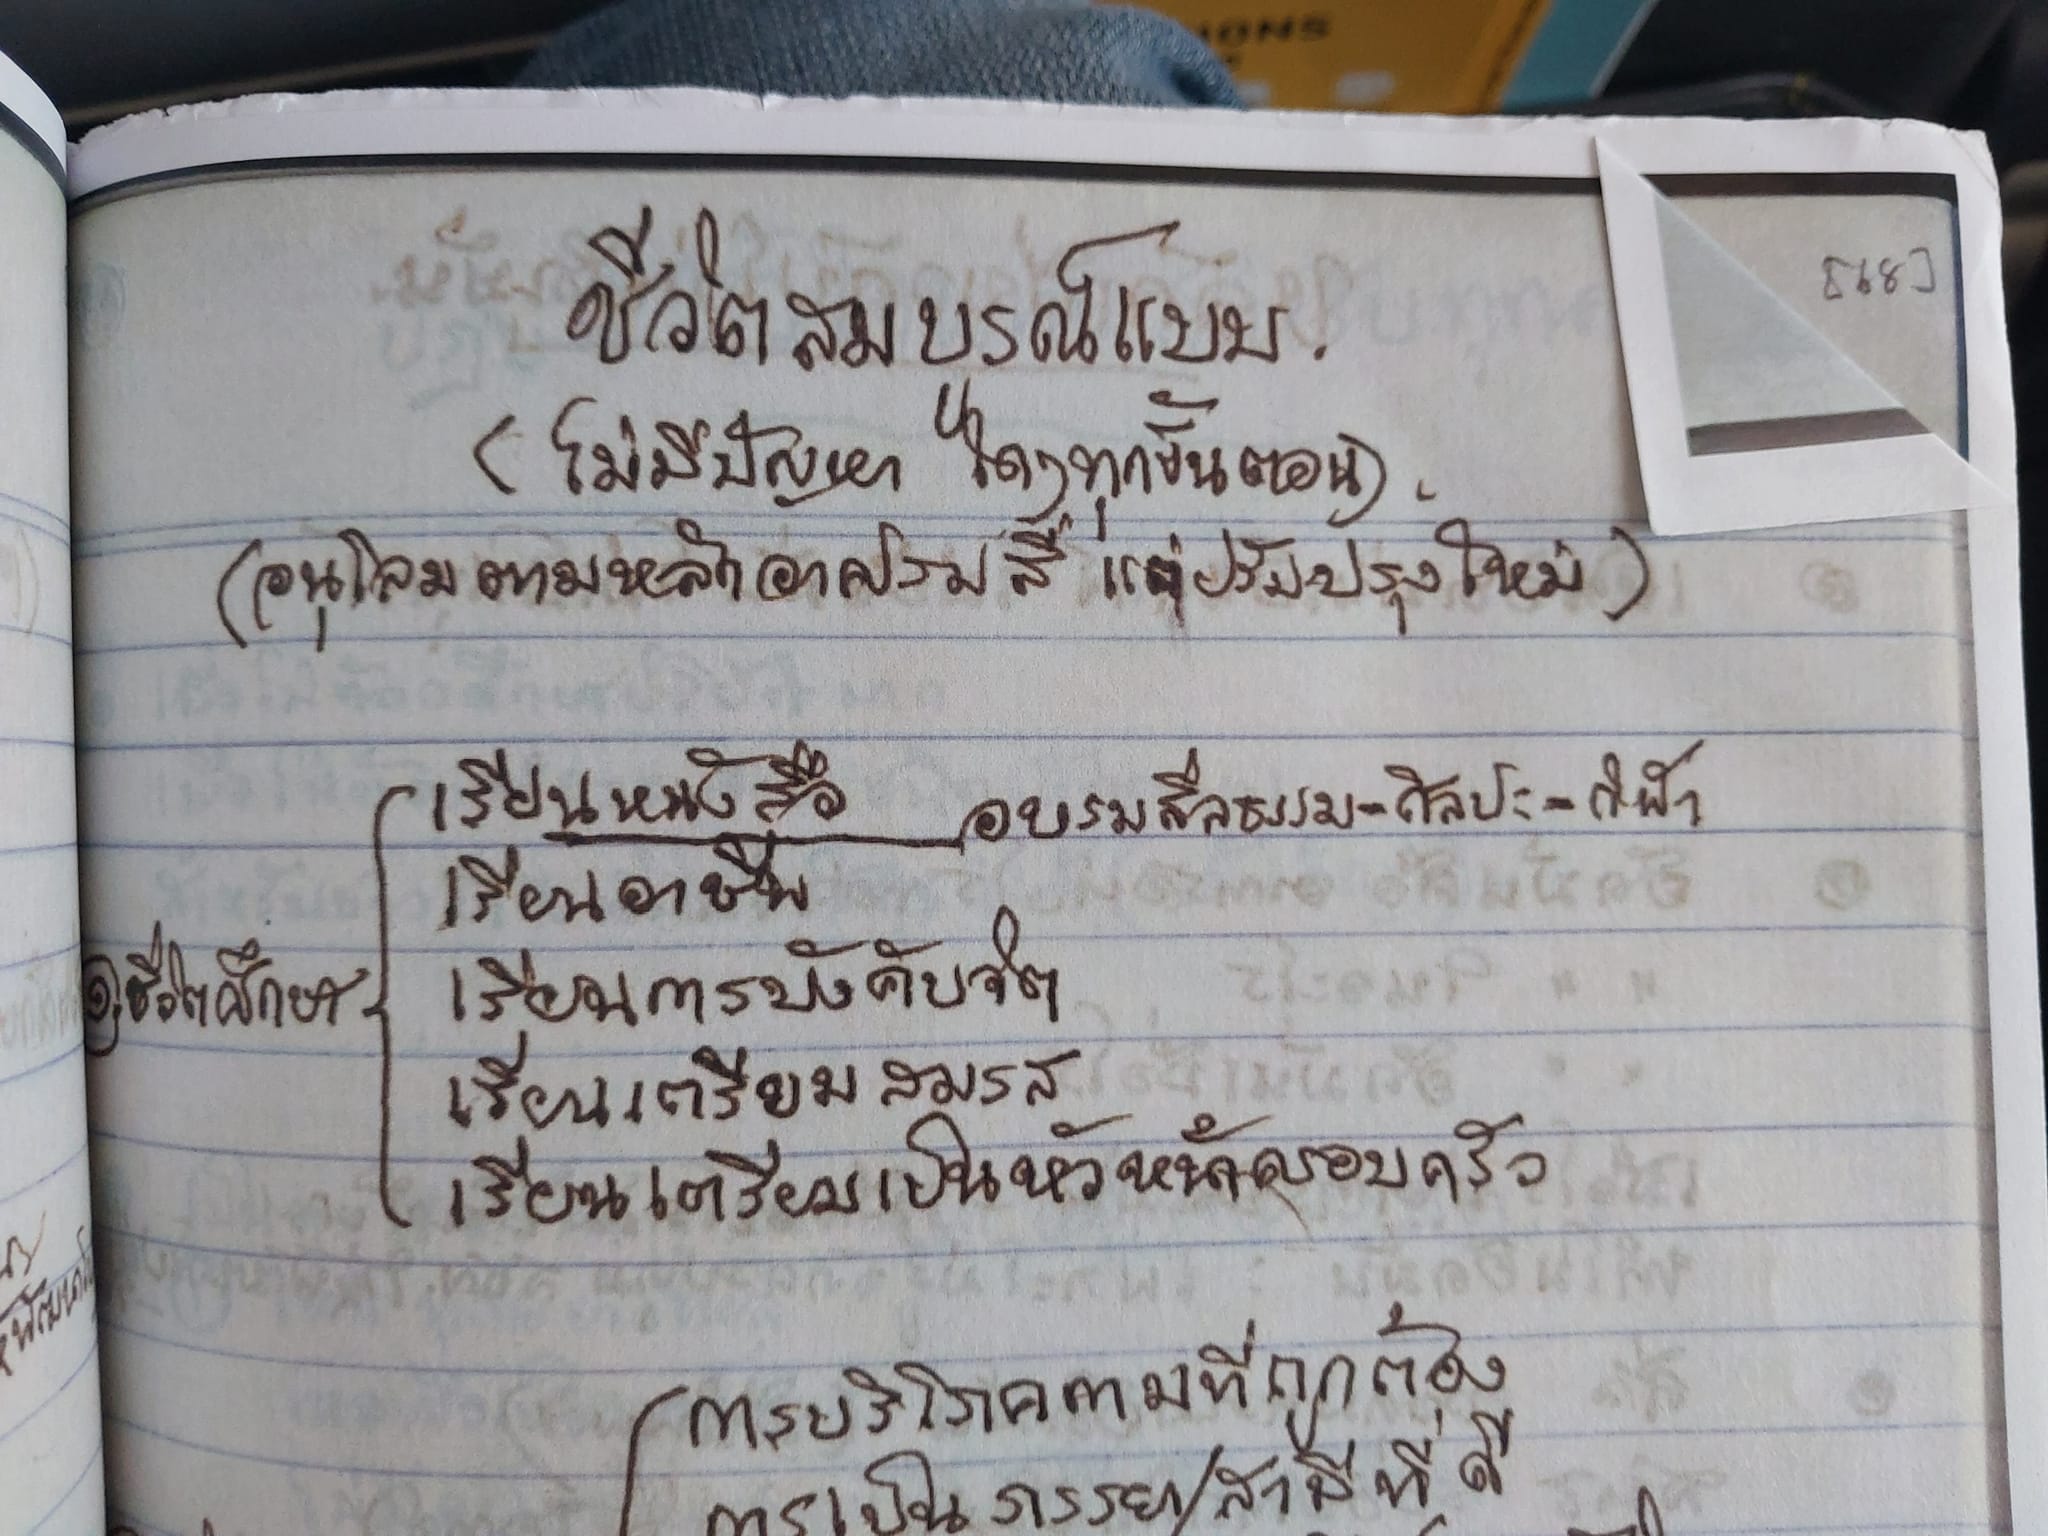 IONS
ชีวิตสมบรณ์แบบ.
(ไม่มีปัญหาใดๆทุกขั้นตอน).
(อนุโลมตามหลักอาศรมสี่ แต่ปรับปรุงใหม่)
เรียนหนังสือ อบรมศีลธรรม-ศิลปะ-กีฬา
เรียนอาชีพ
๑.ชีวิตศึกษา เรียนการบังคับจิต
เรียนเตรียมสมรส
เรียนเตรียมเป็นหัวหน้าครอบครัว
การบริโภคกามที่ถูกต้อง
การเป็นภรรยา/สามีที่ดี